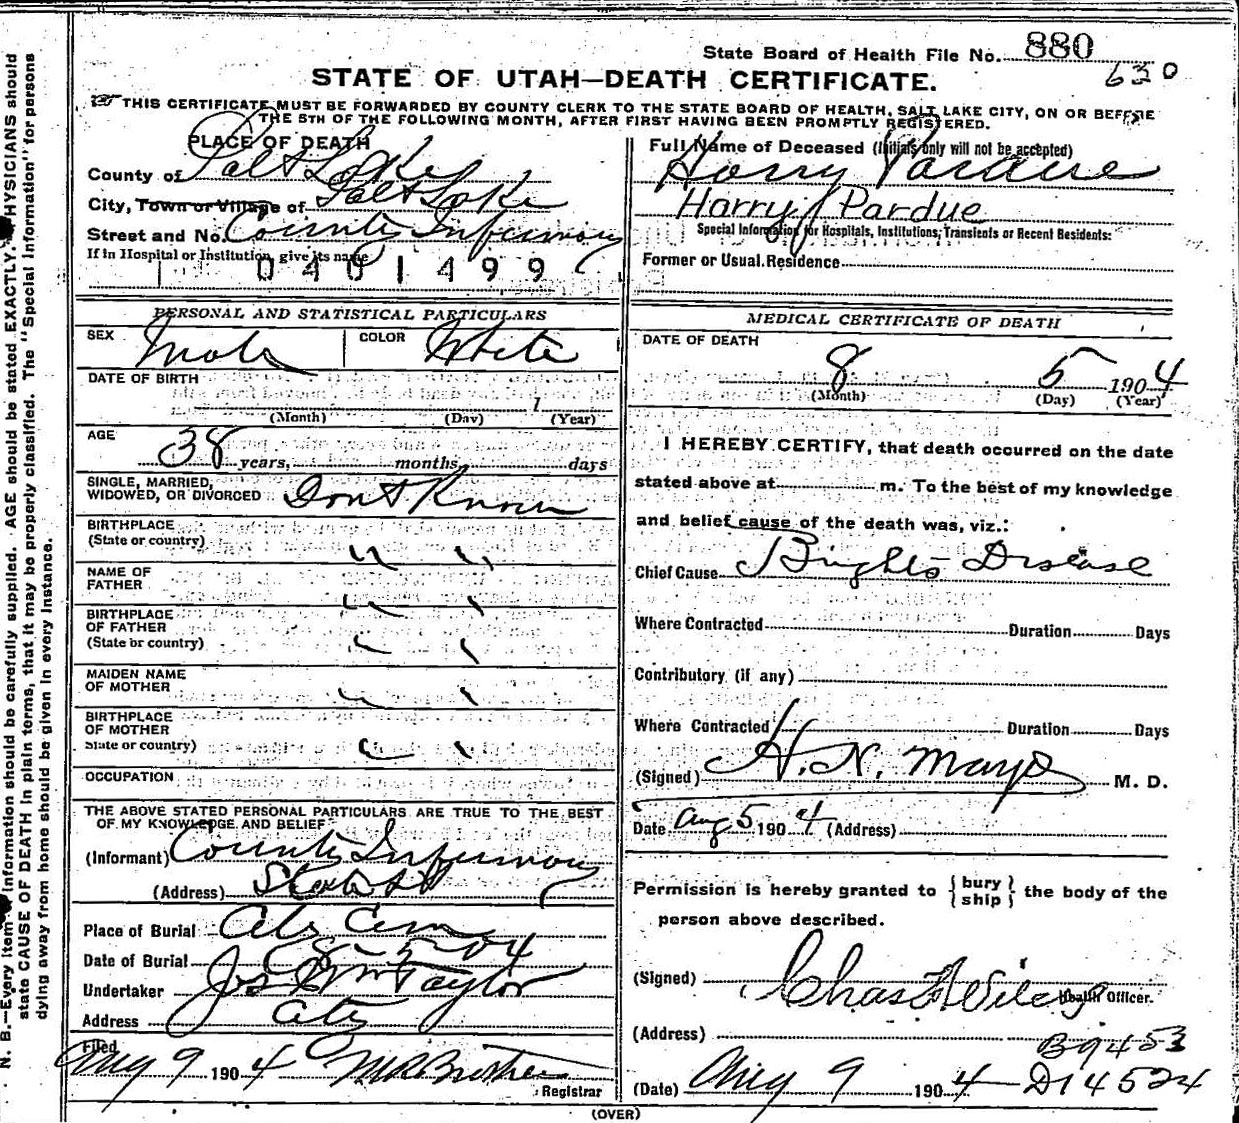 State Board of Health File No. 880
630
STATE OF UTAH—DEATH CERTIFICATE.
THIS CERTIFICATE MUST BE FORWARDED BY COUNTY CLERK TO THE STATE BOARD OF HEALTH, SALT LAKE CITY, ON OR BEFORE
THE 5TH OF THE FOLLOWING MONTH, AFTER FIRST HAVING BEEN PROMPTLY REGISTERED.
PLACE OF DEATH
County of Salt Lake
City, Town or Village of Salt Lake
Street and No. County Infirmary
If in Hospital or Institution, give its name
0401499
PERSONAL AND STATISTICAL PARTICULARS
SEX Male COLOR White
DATE OF BIRTH
1
(Month) (Day) (Year)
AGE
38 years, months, days
SINGLE, MARRIED,
WIDOWED, OR DIVORCED Dont Know
BIRTHPLACE
(State or country) " "
NAME OF
FATHER " "
BIRTHPLACE
OF FATHER
(State or country) " "
MAIDEN NAME
OF MOTHER " "
BIRTHPLACE
OF MOTHER
State or country) " "
OCCUPATION
THE ABOVE STATED PERSONAL PARTICULARS ARE TRUE TO THE BEST
OF MY KNOWLEDGE AND BELIEF
(Informant) County Infirmary
(Address) State St
Place of Burial City Cem
Date of Burial 8-5-04
Undertaker Jos Wm Taylor
Address City
Filed
Aug 9 1904
Registrar
Full Name of Deceased (Initials only will not be accepted)
Harry Pardue
Harry Pardue
Special Information for Hospitals, Institutions, Transients or Recent Residents:
Former or Usual Residence
MEDICAL CERTIFICATE OF DEATH
DATE OF DEATH
8 5 1904
(Month) (Day) (Year)
I HEREBY CERTIFY, that death occurred on the date
stated above at m. To the best of my knowledge
and belief cause of the death was, viz.:
Chief Cause Brights Disease
Where Contracted Duration Days
Contributory (if any)
Where Contracted Duration Days
(Signed) H. N. Mayo M. D.
Date Aug 5 1904 (Address)
Permission is hereby granted to {bury
ship} the body of the
person above described.
(Signed) Chas F Wilcox Health Officer.
(Address)
B9453
(Date) Aug 9 1904 D14524
(OVER)
N. B.—Every item of Information should be carefully supplied. AGE should be stated EXACTLY. PHYSICIANS should
state CAUSE OF DEATH in plain terms, that it may be properly classified. The "Special Information" for persons
dying away from home should be given in every instance.